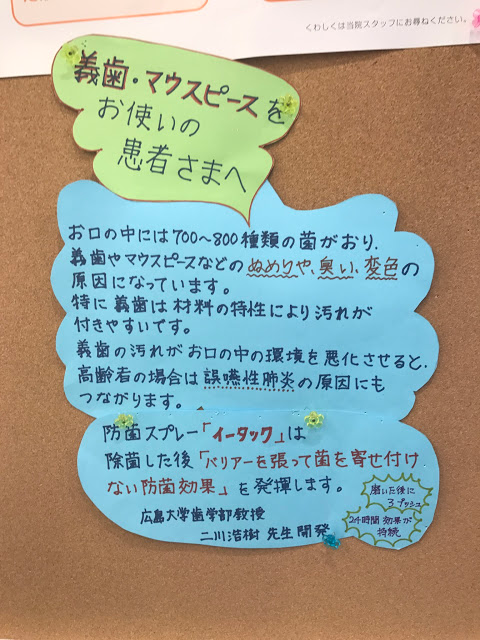 くわしくは当院スタッフにお尋ねください。
義歯・マウスピースを
お使いの
患者さまへ
お口の中には700〜800種類の菌がおり、
義歯やマウスピースなどのぬめりや、臭い、変色の
原因になっています。
特に義歯は材料の特性により汚れが
付きやすいです。
義歯の汚れがお口の中の環境を悪化させると、
高齢者の場合は誤嚥性肺炎の原因にも
つながります。
防菌スプレー「イータック」は
除菌した後「バリアーを張って菌を寄せ付け
ない防菌効果」を発揮します。
広島大学歯学部教授
二川浩樹 先生開発
磨いた後に
3プッシュ
24時間効果が
持続